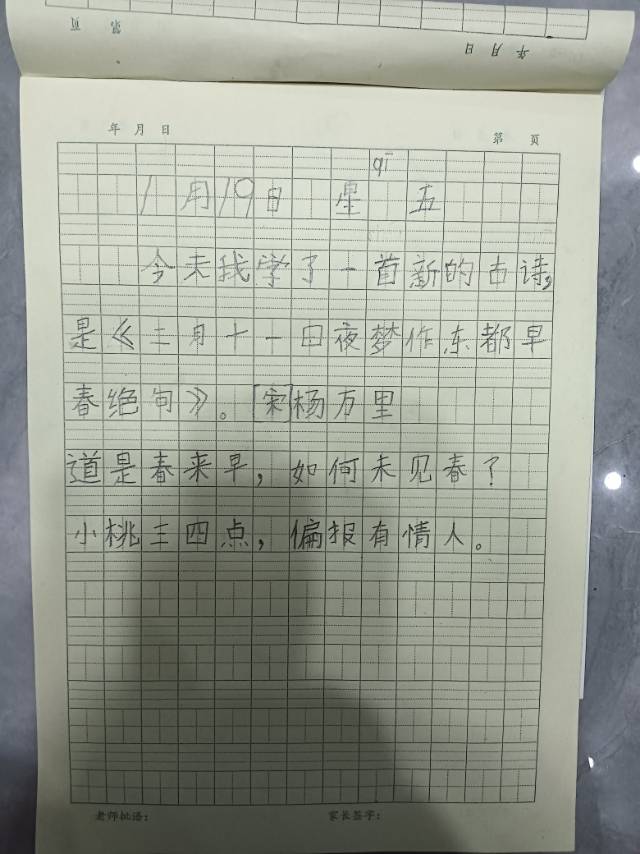 第 页
年 月 日
年 月 日 第 页
qī
1月19日 星 五
今未我学了一首新的古诗,
是《二月十一日夜梦作东都早
春绝句》。[宋]杨万里
道是春来早,如何未见春?
小桃三四点,偏报有情人。
老师批语: 家长签字: